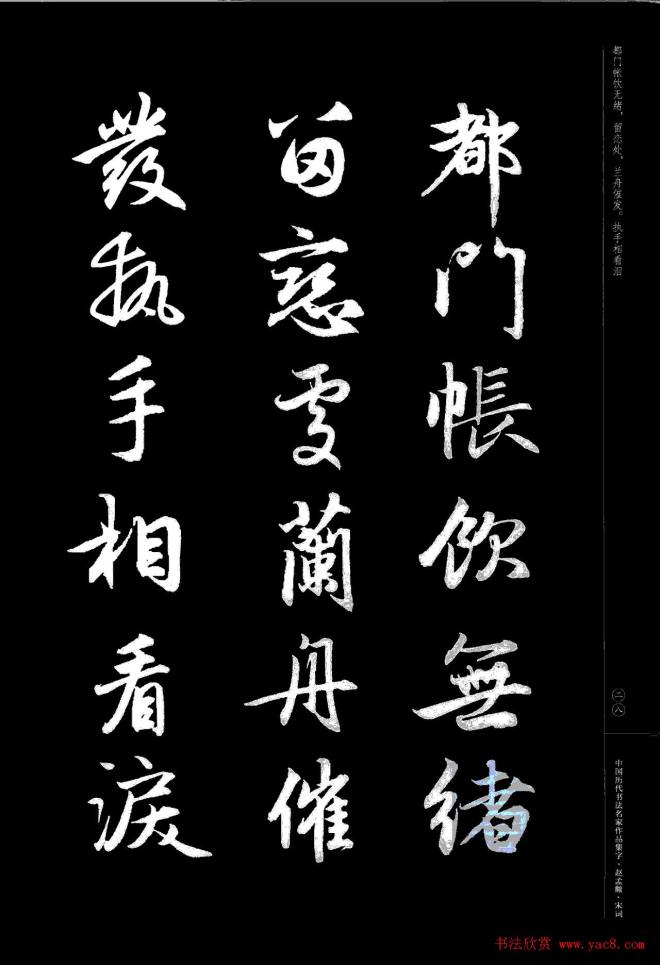 都門帳飲無緒
留戀處蘭舟催
發執手相看淚
都门帐饮无绪，留恋处，兰舟催发。执手相看泪
二八
中国历代书法名家作品集字·赵孟頫·宋词
书法欣赏 www.yac8.com